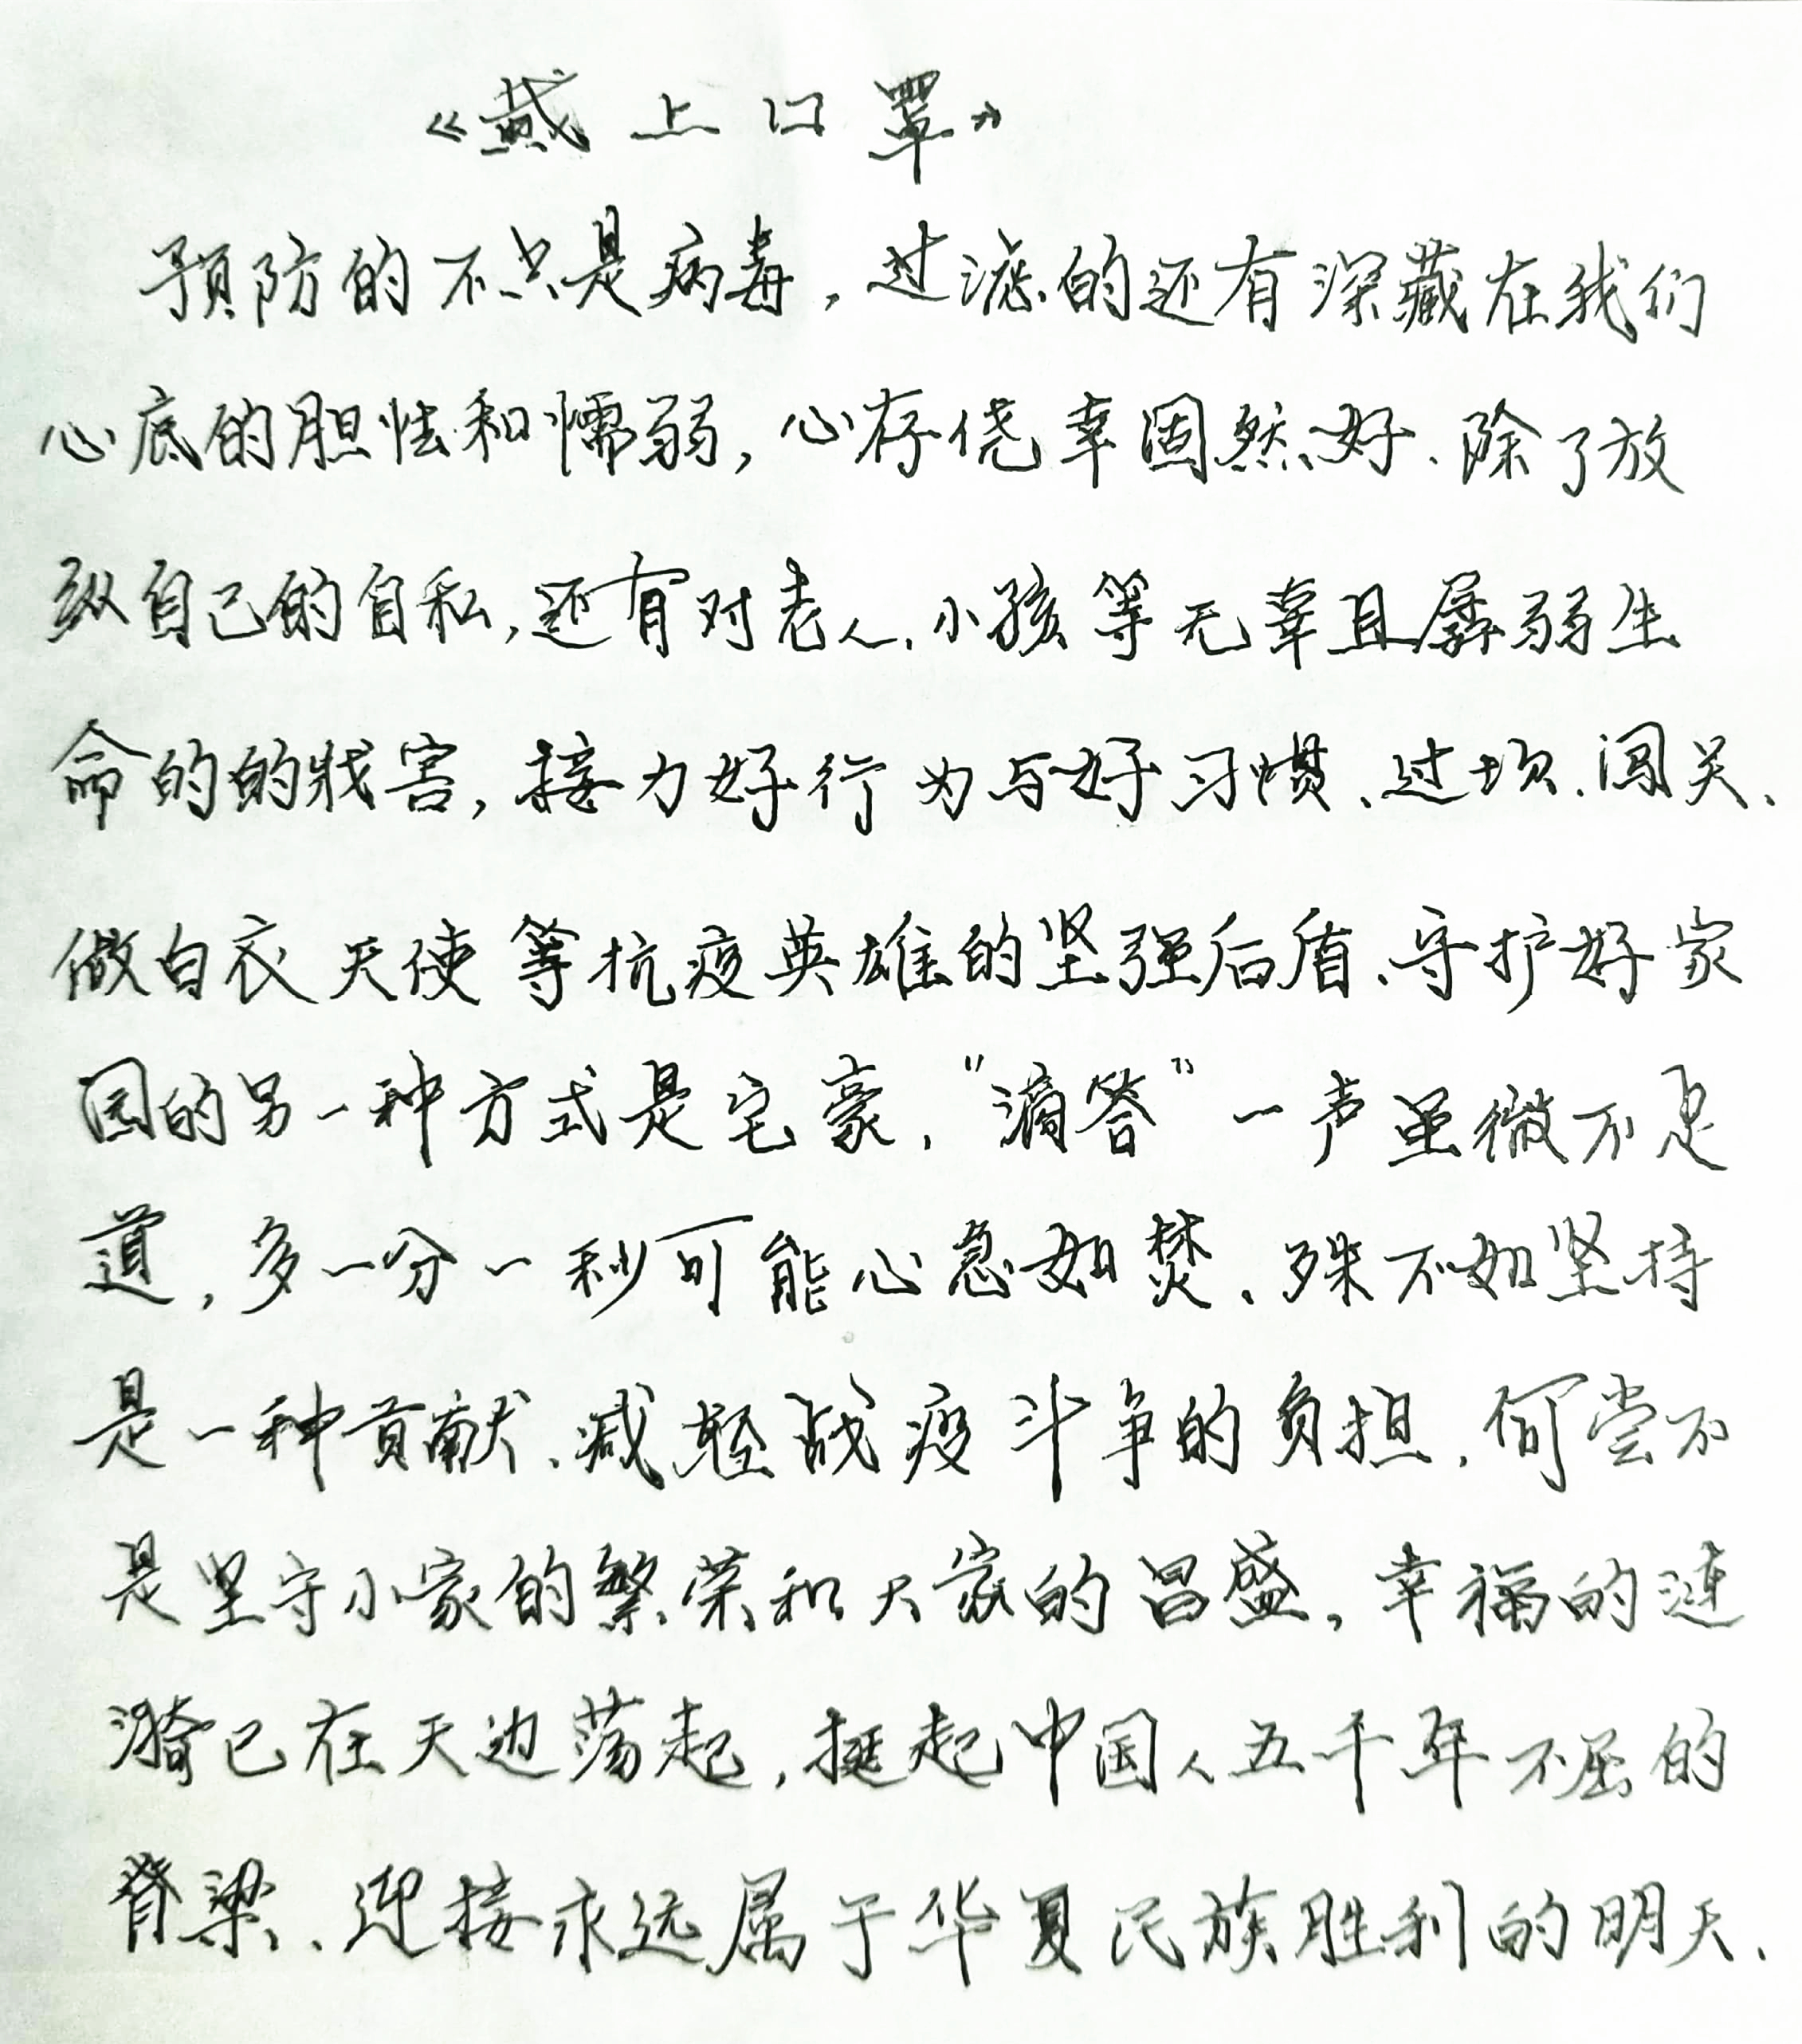 《戴上口罩》
预防的不只是病毒,过滤的还有深藏在我们
心底的胆怯和懦弱,心存侥幸固然好、除了放
纵自己的自私,还有对老人、小孩等无辜且孱弱生
命的的戕害,接力好行为与好习惯、过坎、闯关、
做白衣天使等抗疫英雄的坚强后盾、守护好家
园的另一种方式是宅豪,“滴答”一声虽微不足
道,多一分一秒可能心急如焚、殊不如坚持
是一种贡献、减轻战疫斗争的负担,何尝不
是坚守小家的繁荣和大家的昌盛,幸福的涟
漪已在天边荡起,挺起中国人五千年不屈的
脊梁、迎接永远属于华夏民族胜利的明天、